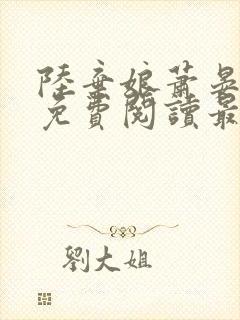 陸棄娘蕭晏
免費閱讀最
劉大姐